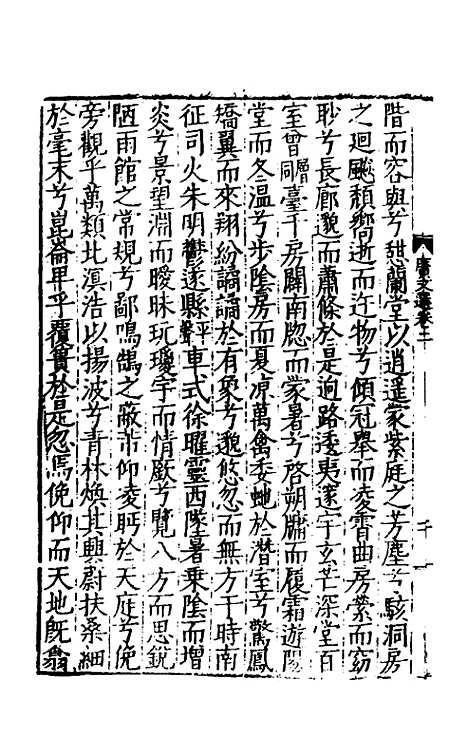 階而容與兮憇蘭堂以逍遥蒙紫庭之芳塵兮駭洞房
之迴飈頽嚮逝而迕物兮傾冠舉而凌霄曲房縈而窈
眇兮長廊邈而蕭條於是逈路逶夷邃宇玄芒深堂百
室曾臺千房闢南牎而蒙暑兮啓朔牖而履霜遊陽
堂而冬温兮步陰房而夏凉萬禽委虵於潜室兮驚鳳
矯翼而來翔紛譎譎於有象兮邈悠忽而無方于時南
征司火朱明鬱遂縣車式徐曜靈西墜暑乘陰而增
炎兮景望淵而曖昧玩瓊宇而情廞兮覽八方而思銳
陋雨館之常規兮鄙鳴鵠之蔽芾仰凌眄於天庭兮俛
旁觀乎萬類北溟浩以揚波兮青林煥其興蔚扶桑細
於毫末兮崑崙卑乎覆簣於是忽焉俛仰而天地旣翕
唐文選卷二